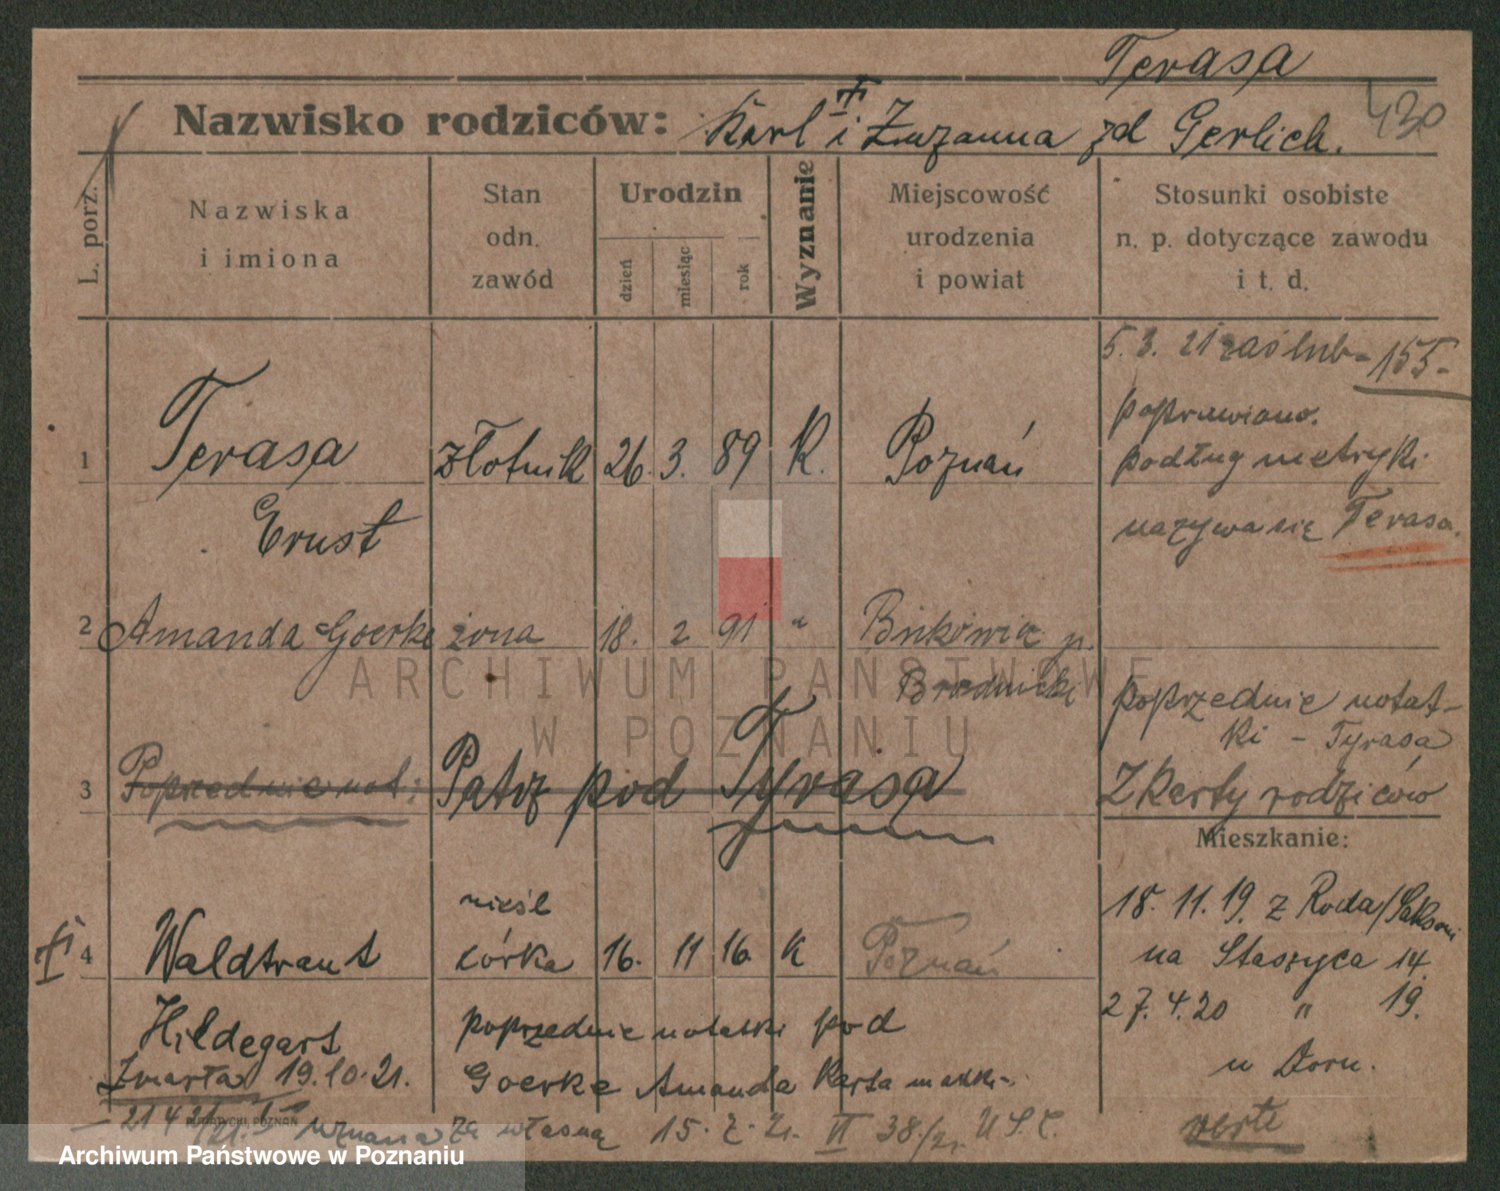 Terasa
430
Nazwisko rodziców: Karl i Zuzanna zd Gerlich.
L. porz.
Nazwiska i imiona
Stan odn. zawód
Urodzin
dzień miesiąc rok
Wyznanie
Miejscowość urodzenia i powiat
Stosunki osobiste n. p. dotyczące zawodu i t. d.
5. 3. 21 zaślub- 155-
poprawiono.
1 Terasa złotnik 26. 3. 89 K. Poznań podług metryki
Ernst nazywa się Terasa.
2 Amanda Goerke żona 18. 2. 91 " p.
Brodnicki poprzednie notat-
ki - Tyrasa
3 Poprzednie not: Patrz pod Tyrasa Z Karty rodziców
Mieszkanie:
nieśl 18. 11. 19. z Roda/
4 Waldtraut córka 16. 11 16. K Poznań na Staszyca 14.
Hildegart poprzednie notatki pod 27. 4. 20 " 19.
Zmarła 19. 10. 21. Goerke Amanda Karta matki-. u Dorn.
uznana za własną 15. 2. 21. II 38./21 U.S.C. verte
ARCHIWUM PAŃSTWOWE
W POZNANIU
Archiwum Państwowe w Poznaniu